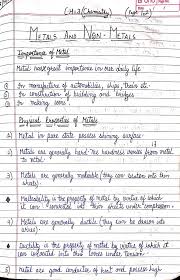 (Ch-3) Chemistry)
METALS AND NON-METALS
Importance of Metal
Metals have great importance in our daily life.
① for manufacture of automobiles, ships, trains etc.
② for construction of building and bridges
③ for making coins.
Physical Properties of Metals
1) Metal in pure state possess shining surface.
2) Metals are generally hard. The hardness varies from metal to metal.
3) Metals are generally malleable (they can beaten into thin sheets)
Malleability is the property of metal by virtue of which it can converted into thin sheets under compression.
4) Metals are generally ductile (they can be drawn into wires)
Ductility is the property of metal by virtue of which it can converted into thin wires under tension.
5) Metal are good conductor of heat and possess high